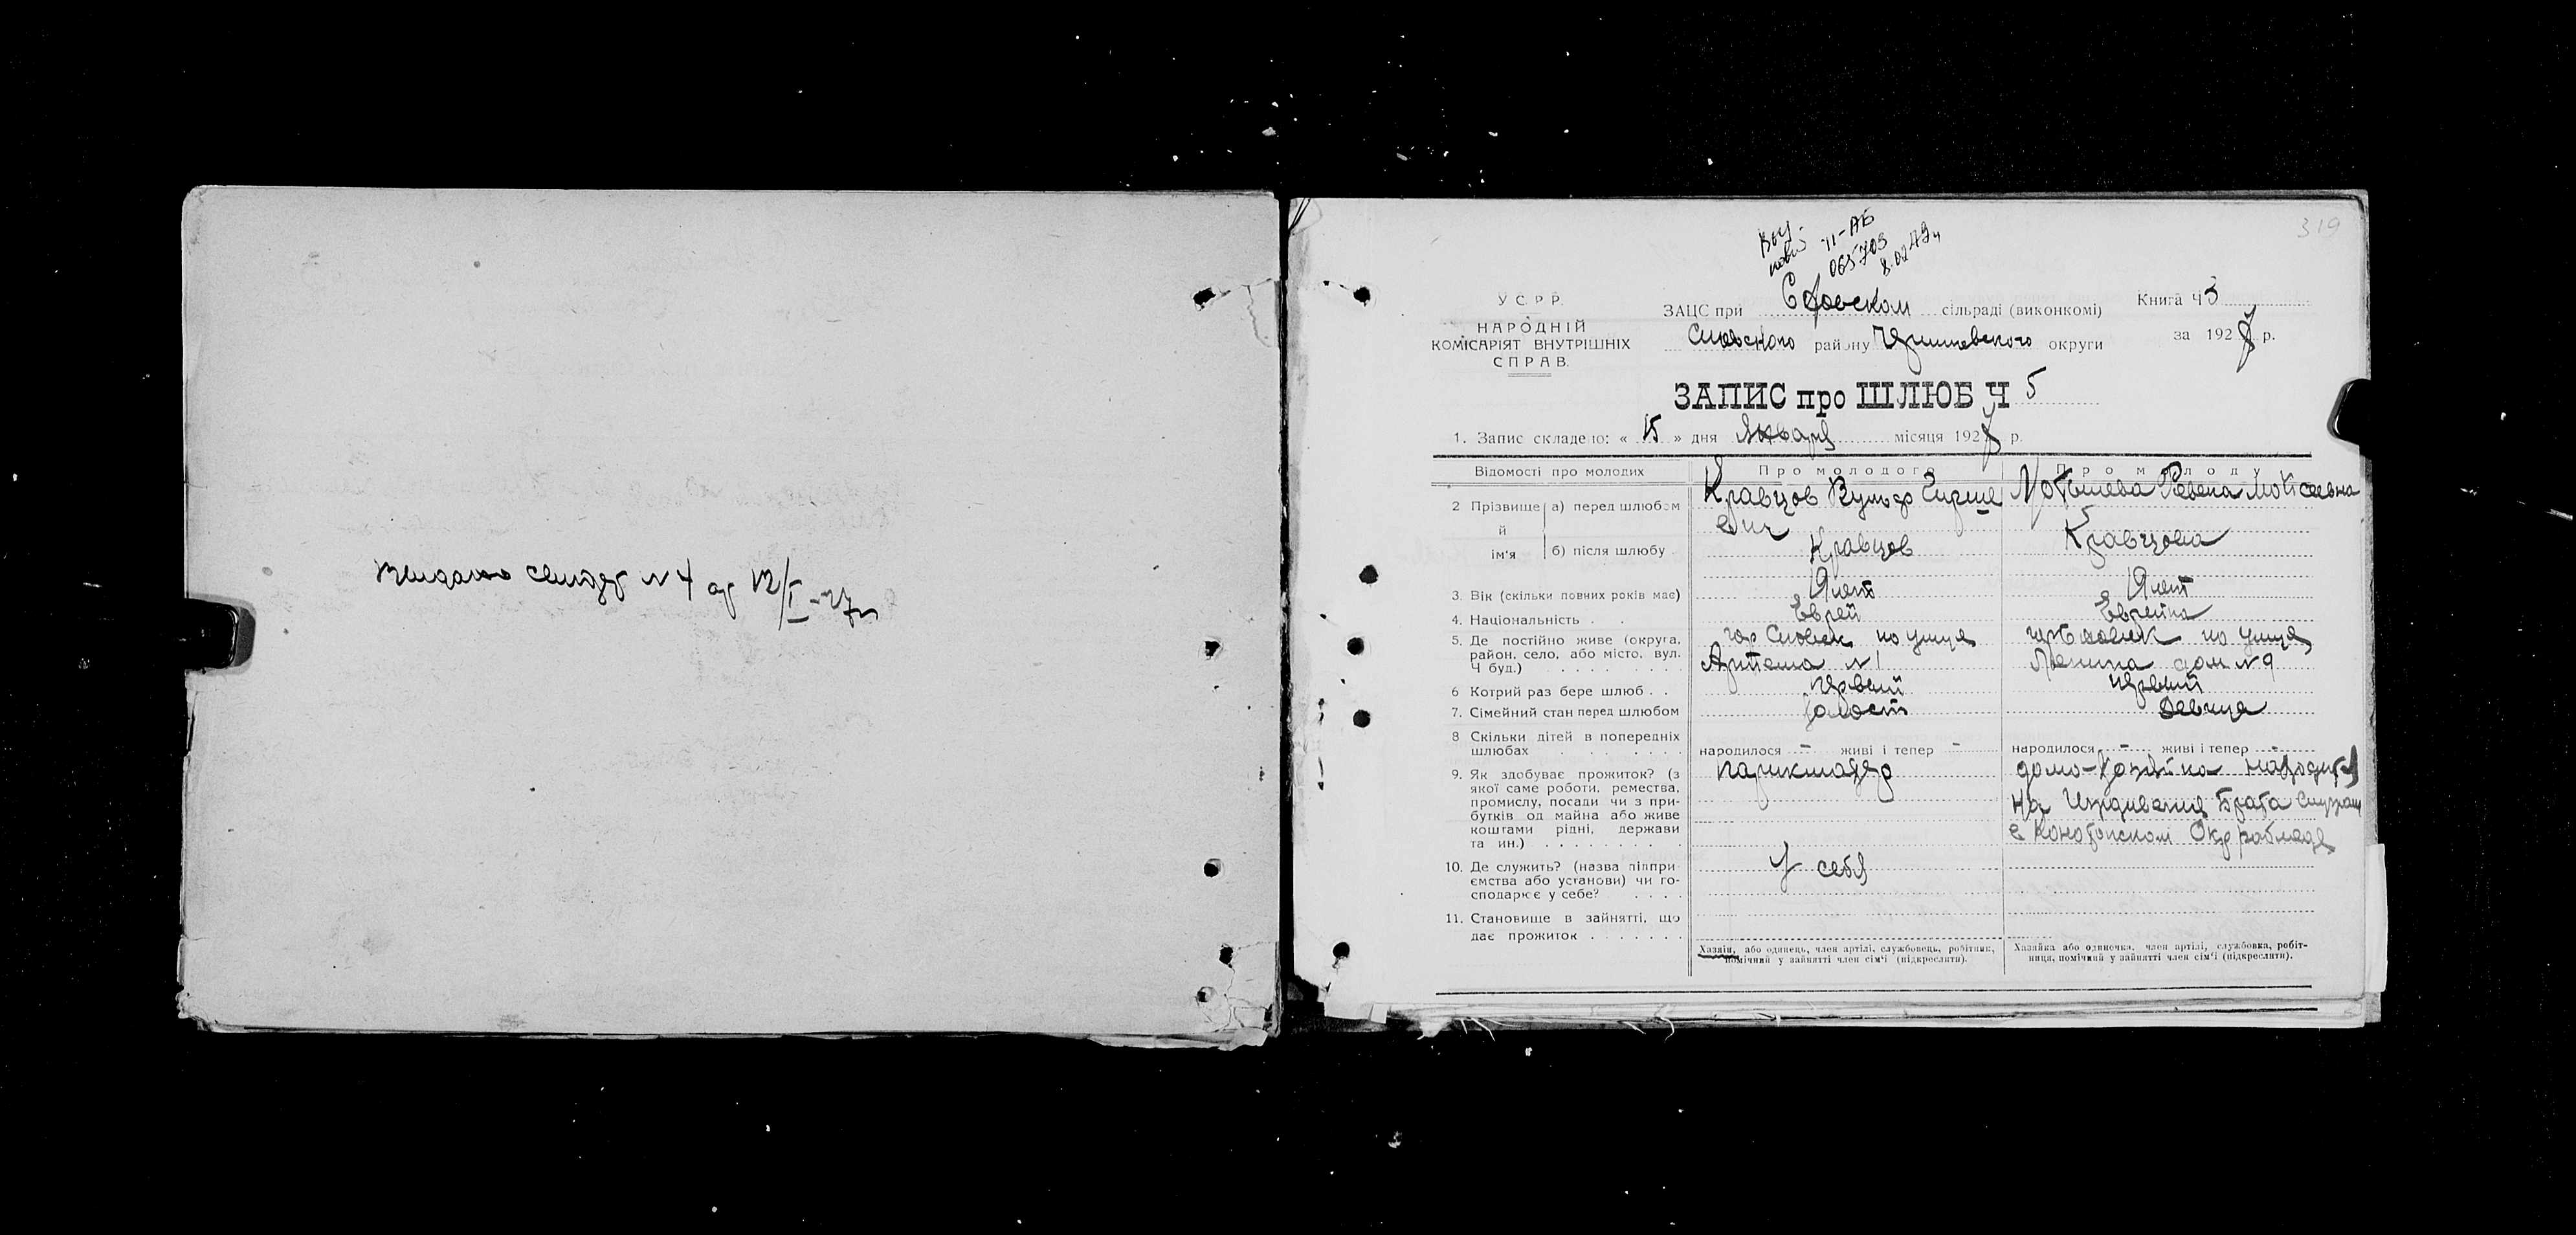 Выдано свидет N 4 от 12/I-27г
319
Выд.
II-АБ
065703
У.С.Р.Р.
НАРОДНІЙ
КОМІСАРІЯТ ВНУТРІШНІХ
СПРАВ.
ЗАЦС при сільраді (виконкомі)
Сновского району Черниговского округи
Книга Ч 3
за 1927 р.
ЗАПИС про ШЛЮБ Ч 5
1. Запис складено: « 15 » дня Января місяця 1927 р.
Відомості про молодих
Про молодого
Про молоду
2 Прізвище й ім'я
а) перед шлюбом
Кравцов Вульф Гирше
евич
Ревека Моисеевна
б) після шлюбу
Кравцов
Кравцова
3. Вік (скільки повних років має)
лет
лет
4. Національність . .
Еврей
Еврейка
5. Де постійно живе (округа,
район, село, або місто, вул.
Ч буд.) . . . . . .
гор Сновск по улице
Артема N 1
гор Сновск по улице
Ленина дом N 9
6 Котрий раз бере шлюб . .
первый
первый
7. Сімейний стан перед шлюбом
холост
девица
8 Скільки дітей в попередніх
шлюбах . . . . . .
народилося - живі і тепер -
народилося - живі і тепер -
9. Як здобуває прожиток? (з
якої саме роботи, ремества,
промислу, посади чи з при-
бутків од майна або живе
коштами рідні, держави
та ин.) . . . . . . . .
парикмахер
домо-хозяйка находится
на Иждивении Брата
в Конотопском Окр
10. Де служить? (назва підпри-
ємства або установи) чи го-
сподарює у себе? . . . .
У себя
11. Становище в зайнятті, що
дає прожиток . . . . . . .
Хазяїн, або одинець, член артілі, службовець, робітник,
помічний у зайнятті член сім'ї (підкреслити).
Хазяйка або одиночка, член артілі, службовка, робіт-
ниця, помічний у зайнятті член сім'ї (підкреслити).